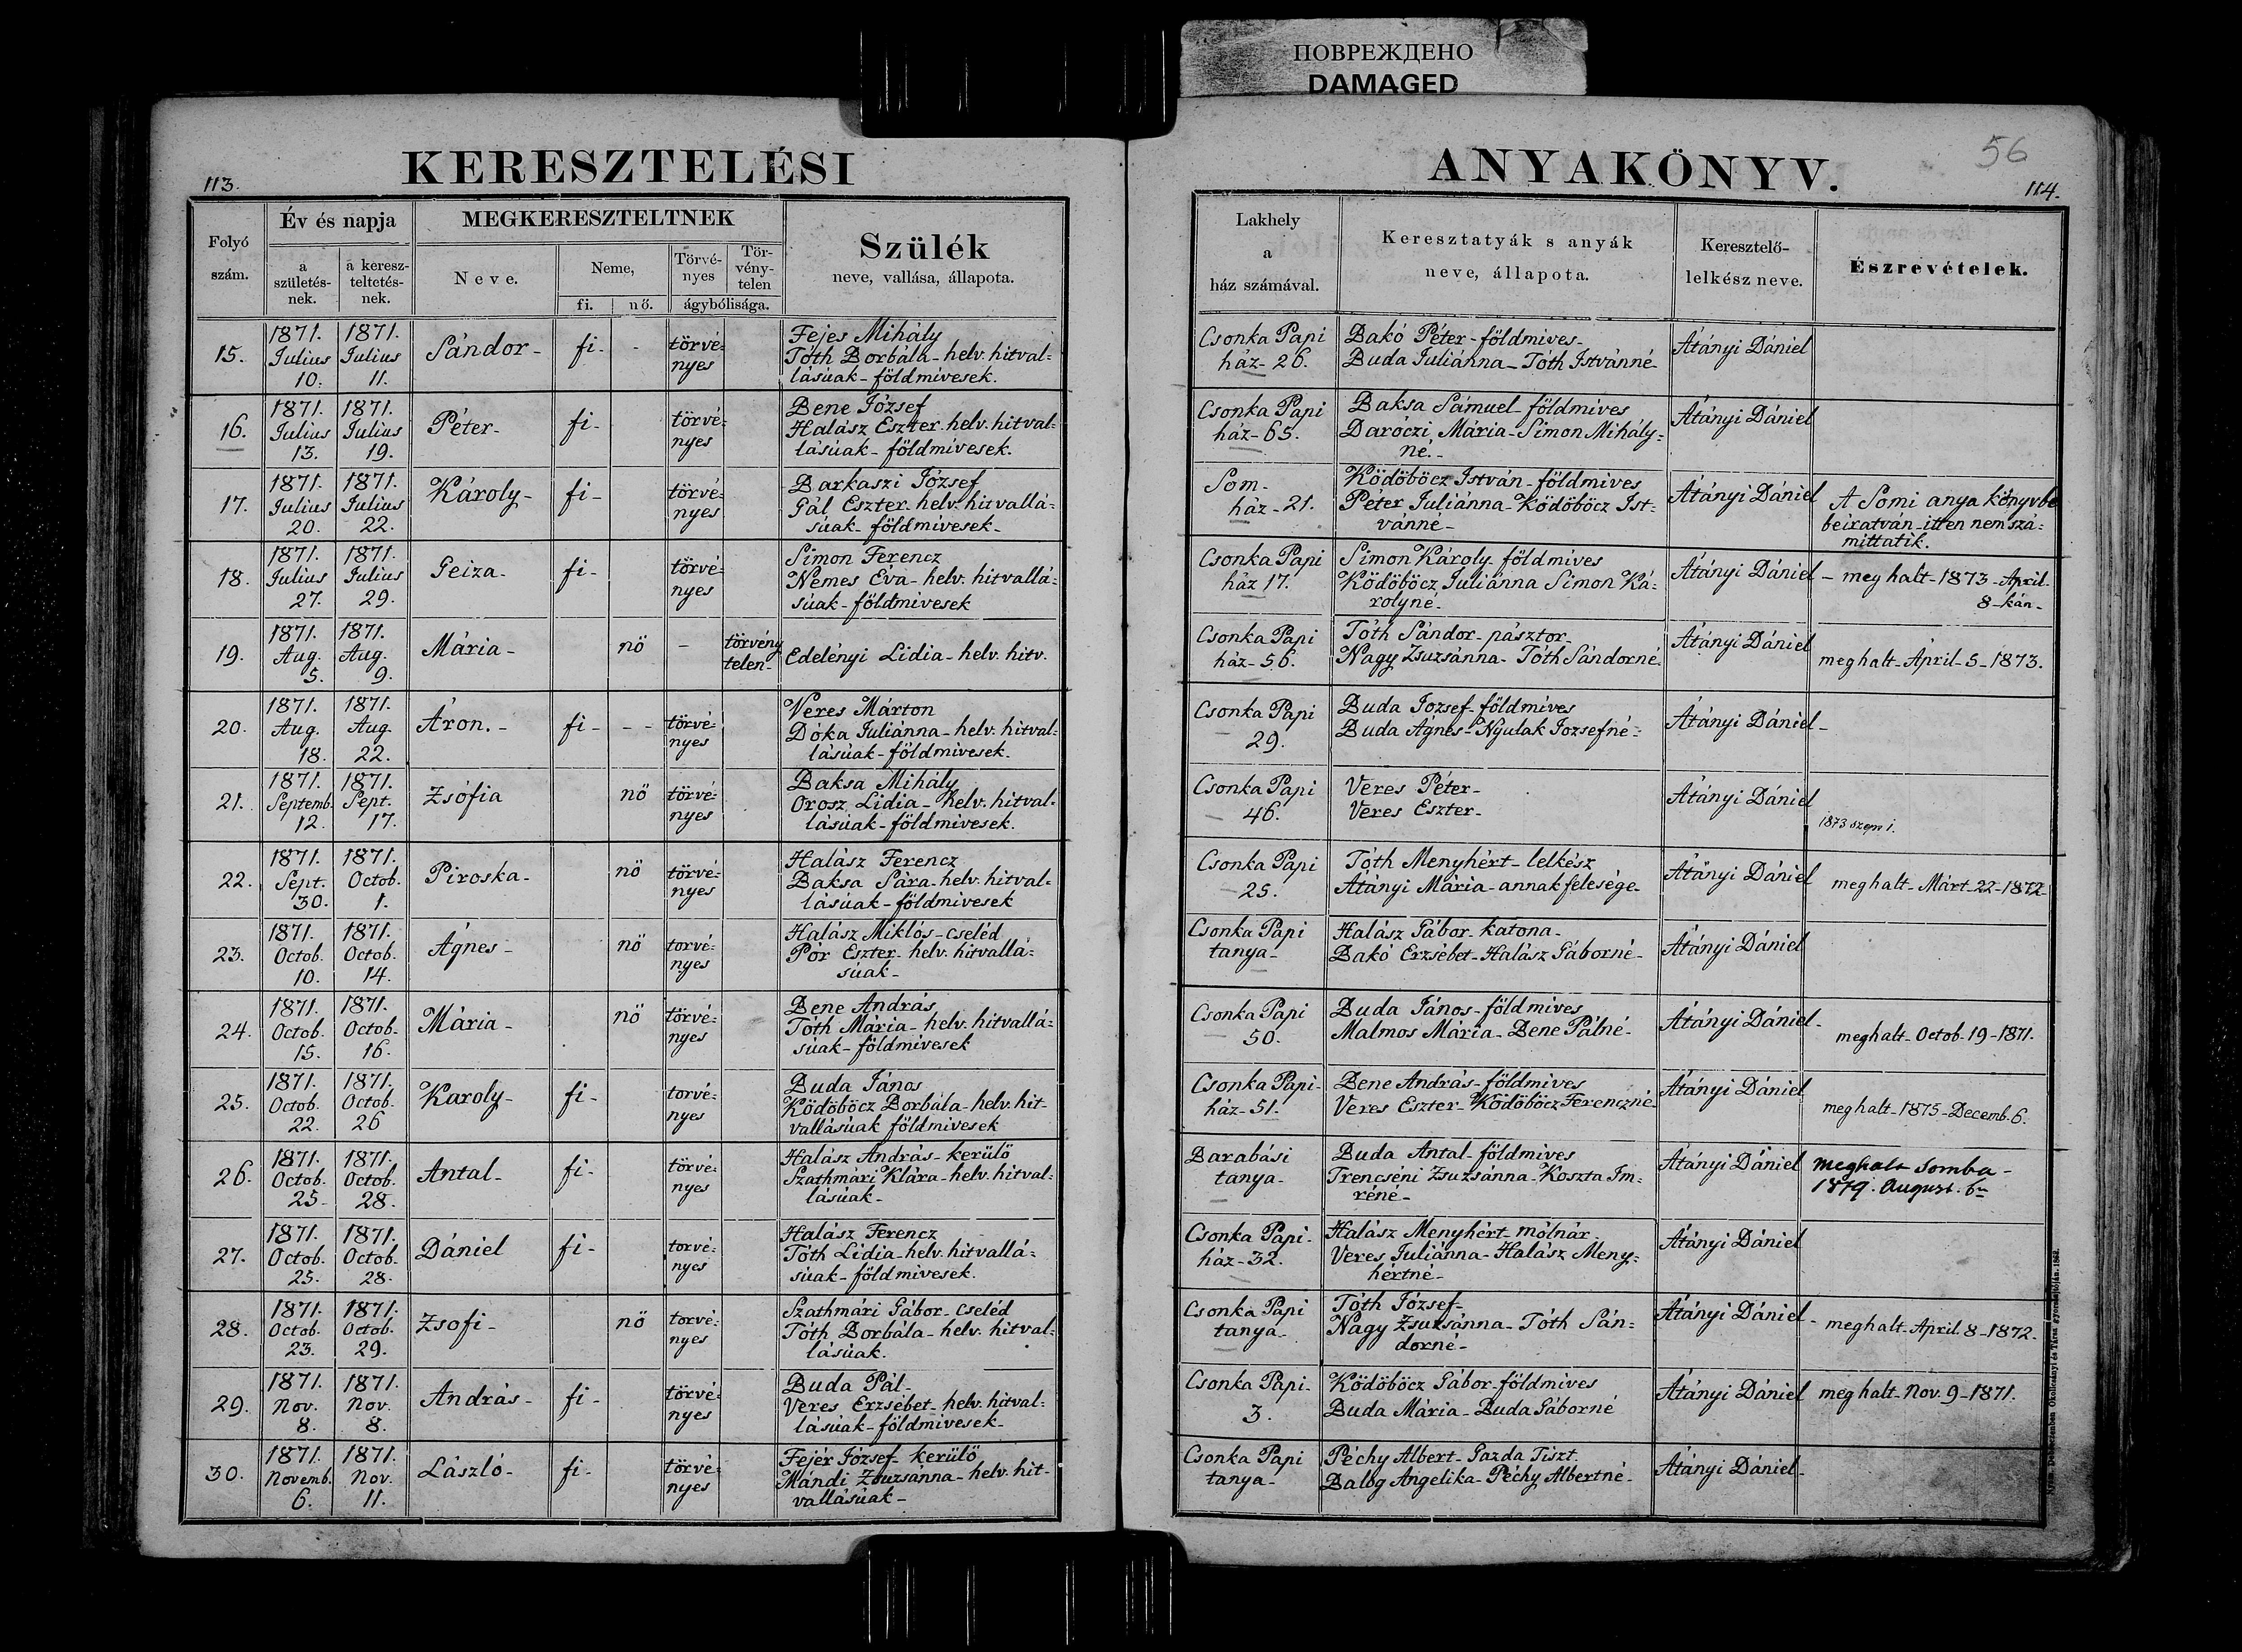 ПОВРЕЖДЕНО
DAMAGED
113.
KERESZTELÉSI
Folyó szám.
Év és napja
a születés-nek.
a keresz-teltetés-nek.
MEGKERESZTELTNEK
Neve.
Neme,
fi.
nő.
Törvé-nyes
Tör-vény-telen
ágybólisága.
Szülék
neve, vallása, állapota.
15. 1871. Julius 10. 1871. Julius 11. Sándor- fi- - törvé=nyes
Fejes Mihály
Tóth Borbála- helv. hitval=
lásúak- földmívesek.
16. 1871. Julius 13. 1871. Julius 19. Péter- fi- törvé=nyes
Bene József
Halász Eszter- helv. hitval=
lásúak- földmívesek.
17. 1871. Julius 20. 1871. Julius 22. Károly- fi- törvé=nyes
Barkaszi József
Gál Eszter- helv. hitvallá=
súak- földmívesek-
18. 1871. Julius 27. 1871. Julius 29. Geiza- fi- törvé=nyes
Simon Ferencz
Nemes Éva- helv. hitvallá=
súak- földmívesek
19. 1871. Aug. 5. 1871. Aug. 9. Mária- nö - törvény telen-
Edelényi Lidia- helv. hitv.
20. 1871. Aug. 18. 1871. Aug. 22. Áron.- fi- - - törvé=nyes
Veres Márton
Dóka Juliánna- helv. hitval=
lásúak- földmívesek.
21. 1871. Septemb. 12. 1871. Sept. 17. Zsófia nö törvé=nyes
Baksa Mihály
Orosz Lidia- helv. hitval=
lásúak- földmívesek.
22. 1871. Sept. 30. 1871. Octob. 1. Piroska- nö törvé=nyes
Halász Ferencz
Baksa Sára- helv. hitval=
lásúak- földmívesek
23. 1871. Octob. 10. 1871. Octob. 14. Ágnes- nö torvé=nyes
Halász Miklós- cseléd
Pór Eszter- helv. hitvallá=
súak-
24. 1871. Octob. 15. 1871. Octob. 16. Mária- nö törvé=nyes
Bene András
Tóth Mária- helv. hitvallá=
súak- földmívesek
25. 1871. Octob. 22. 1871. Octob. 26 Karoly- fi- torvé=nyes
Buda János
Ködöböcz Borbála- helv. hit-
vallásúak földmívesek
26. 1871. Octob. 25- 1871. Octob. 28. Antal- fi- törvé=nyes
Halász András- kerülő
Szathmári Klára- helv. hitval=
lásúak-
27. 1871. Octob. 25. 1871. Octob. 28- Dániel fi- torvé=nyes
Halász Ferencz
Tóth Lidia- helv. hitvallá=
súak- földmívesek.
28. 1871. Octob. 23. 1871. Octob. 29. Zsofi- nö torvé=nyes
Szathmári Gábor- cseléd
Tóth Borbála- helv. hitval=
lásúak.
29. 1871. Nov. 8. 1871. Nov. 8. András- fi- törvé=nyes
Buda Pál-
Veres Erzsébet- helv. hitval=
lásúak- földmívesek-
30. 1871. Novemb. 6. 1871. Nov. 11. László- fi- törvé=nyes
Fejér József- kerülő
Mándi Zsuzsánna- helv. hit-
vallásúak-
56
ANYAKÖNYV.
114.
Lakhely a ház számával.
Keresztatyák s anyák
neve, állapota.
Keresztelő-
lelkész neve.
Észrevételek.
Csonka Papi ház- 26.
Bakó Péter- földmíves-
Buda Juliánna- Tóth Istvánné-
Átányi Dániel
Csonka Papi ház- 65.
Baksa Sámuel- földmíves
Daróczi Mária- Simon Mihály=
né.-
Átányi Dániel
Som- ház- 21.
Ködöböcz István- földmíves
Péter Juliánna- Ködöböcz Ist=
vánné-
Átányi Dániel
A Somi anya könyvbe
beiratván- itten nem szá=
mittatik.
Csonka Papi ház 17.
Simon Károly- földmíves
Ködöböcz Juliánna Simon Ká=
rolyné-
Átányi Dániel
- meg halt- 1873- April-
8- kán-
Csonka Papi ház- 56.
Tóth Sándor- pásztor-
Nagy Zsuzsánna- Tóth Sándorné-
Átányi Dániel
meghalt- April- 5- 1873.
Csonka Papi 29.
Buda Jozsef- földmíves
Buda Ágnes- Nyulak Jozsefné-
Átányi Dániel-
Csonka Papi 46.
Veres Péter-
Veres Eszter-
Átányi Dániel
1873
Csonka Papi 25.
Tóth Menyhért- lelkész
Átányi Mária- annak felesége-
Átányi Dániel
meghalt- Márt- 22- 1872-
Csonka Papi tanya-
Halász Gábor- katona-
Bakó Erzsébet- Halász Gáborné-
Átányi Dániel
Csonka Papi 50.
Buda János- földmíves
Malmos Mária- Bene Pálné-
Átányi Dániel-
meghalt- Octob- 19- 1871.
Csonka Papi- ház- 51.
Bene András- földmíves
Veres Eszter- Ködöböcz Ferenczné-
Átányi Dániel
meghalt- 1875- Decemb. 6.
Barabási tanya-
Buda Antal- földmíves
Trencséni Zsuzsánna- Koszta Im=
réné-
Átányi Dániel
meghalt Somba-
1879. August. 6
Csonka Papi- ház- 32.
Halász Menyhért- mólnár-
Veres Juliánna- Halász Meny=
hértné-
Átányi Dániel
Csonka Papi tanya-
Tóth József-
Nagy Zsuzsánna- Tóth Sán=
dorné-
Átányi Dániel-
meghalt- April. 8- 1872-
Csonka Papi- 3.
Ködöböcz Gábor- földmíves
Buda Mária- Buda Gáborné
Átányi Dániel
meghalt- Nov. 9- 1871.
Csonka Papi tanya-
Péchy Albert- Gazda Tiszt.
Balog Angelika- Péchy Albertné-
Átányi Dániel-